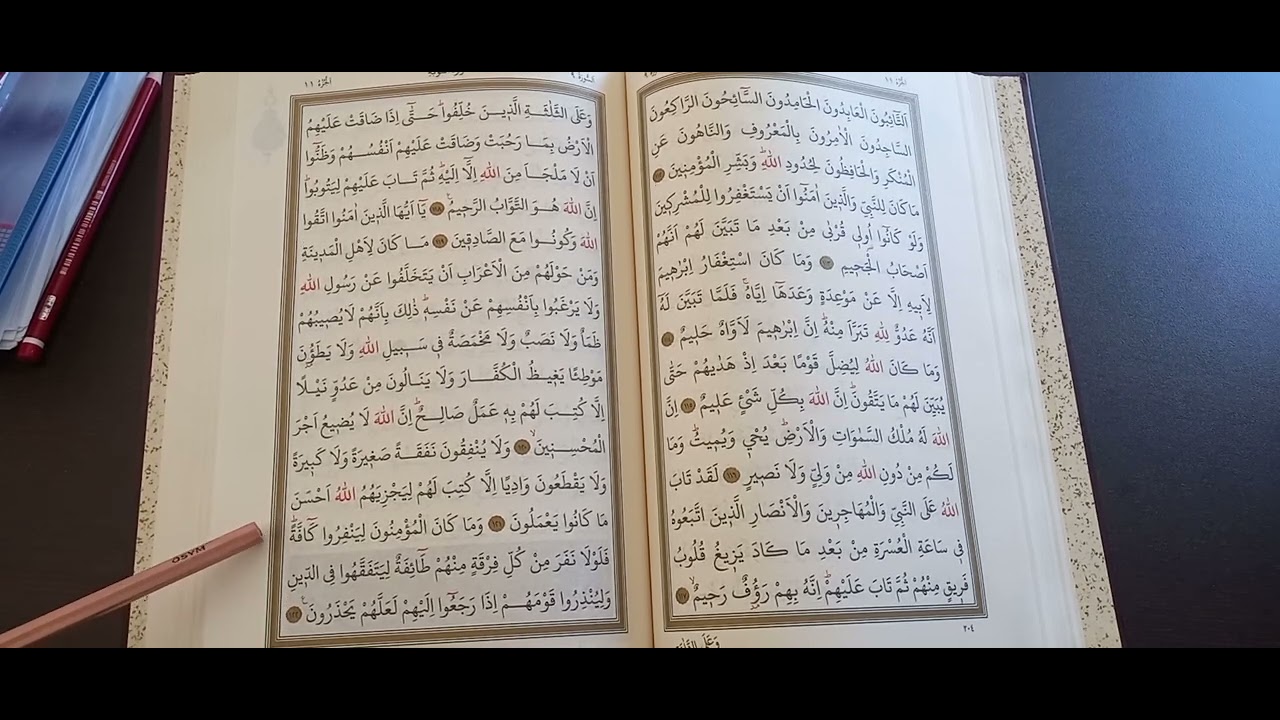 الجزء ١١
اَلتَّٓائِبُونَ الْعَابِدُونَ الْحَامِدُونَ السَّٓائِحُونَ الرَّاكِعُونَ
السَّاجِدُونَ الْاٰمِرُونَ بِالْمَعْرُوفِ وَالنَّاهُونَ عَنِ
الْمُنْكَرِ وَالْحَافِظُونَ لِحُدُودِ اللّٰهِۜ وَبَشِّرِ الْمُؤْمِنِينَ ١١٢
مَا كَانَ لِلنَّبِيِّ وَالَّذِينَ اٰمَنُٓوا اَنْ يَسْتَغْفِرُوا لِلْمُشْرِكِينَ
وَلَوْ كَانُٓوا اُو۬لِي قُرْبٰى مِنْ بَعْدِ مَا تَبَيَّنَ لَهُمْ اَنَّهُمْ
اَصْحَابُ الْجَحِيمِ ١١٣ وَمَا كَانَ اسْتِغْفَارُ اِبْرٰهِيمَ
لِاَبِيهِ اِلَّا عَنْ مَوْعِدَةٍ وَعَدَهَٓا اِيَّاهُۚ فَلَمَّا تَبَيَّنَ لَهُٓ
اَنَّهُ عَدُوٌّ لِلّٰهِ تَبَرَّاَ مِنْهُۜ اِنَّ اِبْرٰهِيمَ لَاَوَّاهٌ حَلِيمٌ ١١٤
وَمَا كَانَ اللّٰهُ لِيُضِلَّ قَوْمًا بَعْدَ اِذْ هَدٰيهُمْ حَتّٰى
يُبَيِّنَ لَهُمْ مَا يَتَّقُونَۜ اِنَّ اللّٰهَ بِكُلِّ شَيْءٍ عَلِيمٌ ١١٥ اِنَّ
اللّٰهَ لَهُ مُلْكُ السَّمٰوَاتِ وَالْاَرْضِۜ يُحْيِي وَيُمِيتُۜ وَمَا
لَكُمْ مِنْ دُونِ اللّٰهِ مِنْ وَلِيٍّ وَلَا نَصِيرٍ ١١٦ لَقَدْ تَابَ
اللّٰهُ عَلَى النَّبِيِّ وَالْمُهَاجِرِينَ وَالْاَنْصَارِ الَّذِينَ اتَّبَعُوهُ
فِي سَاعَةِ الْعُسْرَةِ مِنْ بَعْدِ مَا كَادَ يَزِيغُ قُلُوبُ
فَرِيقٍ مِنْهُمْ ثُمَّ تَابَ عَلَيْهِمْۜ اِنَّهُ بِهِمْ رَؤُ۫فٌ رَحِيمٌۙ ١١٧
٢٠٤
الجزء ١١
السورة ٩
وَعَلَى الثَّلٰثَةِ الَّذِينَ خُلِّفُواۜ حَتّٰٓى اِذَا ضَاقَتْ عَلَيْهِمُ
الْاَرْضُ بِمَا رَحُبَتْ وَضَاقَتْ عَلَيْهِمْ اَنْفُسُهُمْ وَظَنُّٓوا
اَنْ لَا مَلْجَاَ مِنَ اللّٰهِ اِلَّٓا اِلَيْهِۜ ثُمَّ تَابَ عَلَيْهِمْ لِيَتُوبُواۜ
اِنَّ اللّٰهَ هُوَ التَّوَّابُ الرَّحِيمُ۟ ١١٨ يَٓا اَيُّهَا الَّذِينَ اٰمَنُوا اتَّقُوا
اللّٰهَ وَكُونُوا مَعَ الصَّادِقِينَ ١١٩ مَا كَانَ لِاَهْلِ الْمَدِينَةِ
وَمَنْ حَوْلَهُمْ مِنَ الْاَعْرَابِ اَنْ يَتَخَلَّفُوا عَنْ رَسُولِ اللّٰهِ
وَلَا يَرْغَبُوا بِاَنْفُسِهِمْ عَنْ نَفْسِهِۜ ذٰلِكَ بِاَنَّهُمْ لَا يُصِيبُهُمْ
ظَمَاٌ وَلَا نَصَبٌ وَلَا مَخْمَصَةٌ فِي سَبِيلِ اللّٰهِ وَلَا يَطَؤُ۫نَ
مَوْطِئًا يَغِيظُ الْكُفَّارَ وَلَا يَنَالُونَ مِنْ عَدُوٍّ نَيْلًا
اِلَّا كُتِبَ لَهُمْ بِهِ عَمَلٌ صَالِحٌۜ اِنَّ اللّٰهَ لَا يُضِيعُ اَجْرَ
الْمُحْسِنِينَۙ ١٢٠ وَلَا يُنْفِقُونَ نَفَقَةً صَغِيرَةً وَلَا كَبِيرَةً
وَلَا يَقْطَعُونَ وَادِيًا اِلَّا كُتِبَ لَهُمْ لِيَجْزِيَهُمُ اللّٰهُ اَحْسَنَ
مَا كَانُوا يَعْمَلُونَ ١٢١ وَمَا كَانَ الْمُؤْمِنُونَ لِيَنْفِرُوا كَٓافَّةًۜ
فَلَوْلَا نَفَرَ مِنْ كُلِّ فِرْقَةٍ مِنْهُمْ طَٓائِفَةٌ لِيَتَفَقَّهُوا فِي الدِّينِ
وَلِيُنْذِرُوا قَوْمَهُمْ اِذَا رَجَعُٓوا اِلَيْهِمْ لَعَلَّهُمْ يَحْذَرُونَ۟ ١٢٢
ÖSYM